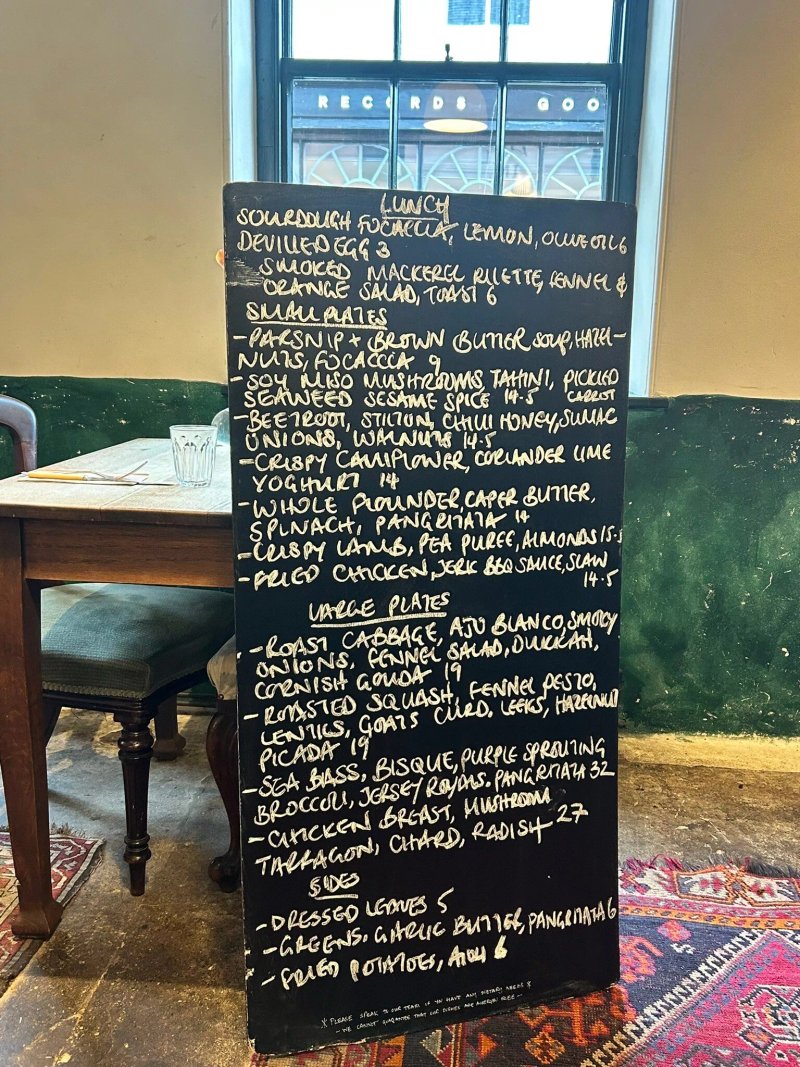 RECORDS GOO
LUNCH
SOURDOUGH FOCACCIA, LEMON, OLIVE OIL 6
DEVILLED EGG 3
SMOKED MACKEREL RILETTE, FENNEL &
ORANGE SALAD, TOAST 6
SMALL PLATES
-PARSNIP + BROWN BUTTER SOUP, HAZEL-
NUTS, FOCACCCA 9
-SOY MISO MUSHROOMS, TAHINI, PICKLED
SEAWEED SESAME SPICE 14.5 CARROT
-BEETROOT, STILTON, CHILLI HONEY, SUMAC
ONIONS, WALNUTS 14.5
-CRISPY CAULIFLOWER, CORIANDER LIME
YOGHURT 14
-WHOLE FLOUNDER, CAPER BUTTER,
SPINACH, PANGRITATA 14
-CRISPY LAMB, PEA PUREE, ALMONDS 15.5
-FRIED CHICKEN, JERK BBQ SAUCE, SLAW
14.5
LARGE PLATES
-ROAST CABBAGE, AJO BLANCO, SMOKY
ONIONS, FENNEL SALAD, DUKKAH,
CORNISH GOUDA 19
-ROASTED SQUASH, FENNEL PESTO,
LENTILS, GOATS CURD, LEEKS, HAZELNUT
PICADA 19
-SEA BASS, BISQUE, PURPLE SPROUTING
BROCCOLI, JERSEY ROYALS. PANGRITATA 32
-CHICKEN BREAST, MUSHROOM
TARRAGON, CHARD, RADISH 27
SIDES
-DRESSED LEAVES 5
-GREENS, GARLIC BUTTER, PANGRITATA 6
-FRIED POTATOES, AIOLI 6
* PLEASE SPEAK TO OUR TEAM IF YOU HAVE ANY DIETARY NEEDS *
- WE CANNOT GUARANTEE THAT OUR DISHES ARE ALLERGEN FREE -